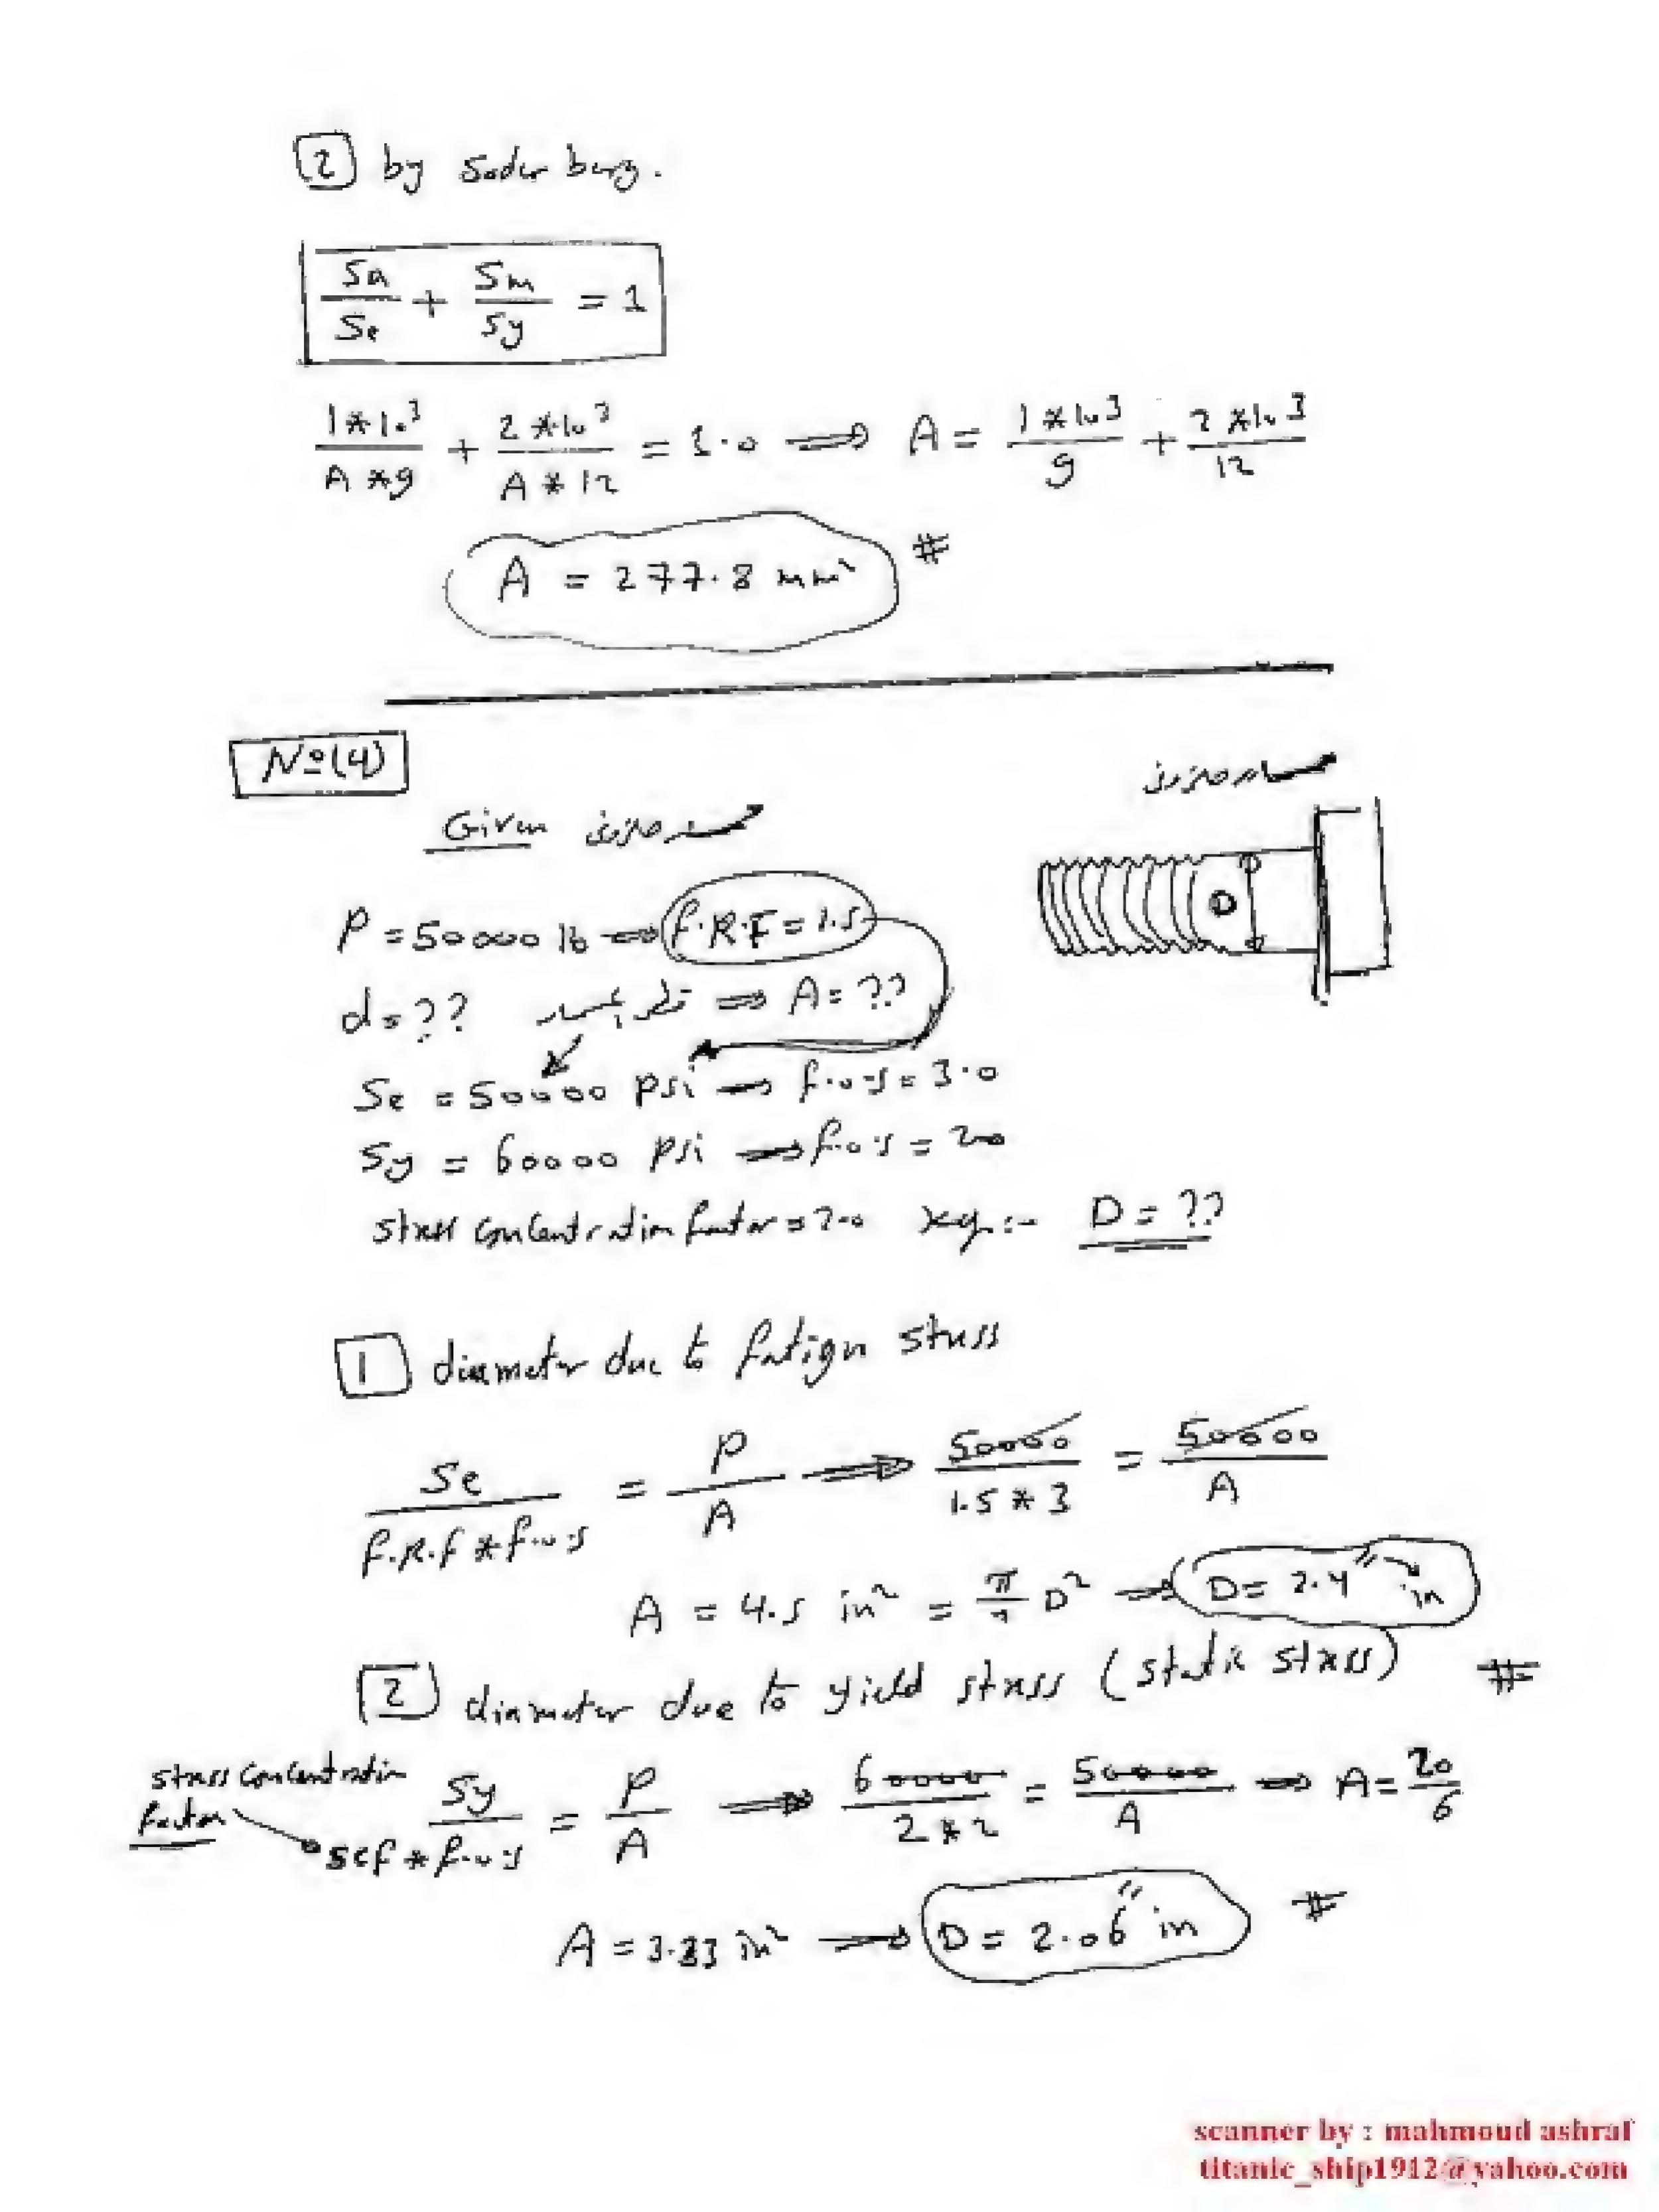 2 by Soderberg.
Sa/Se + Sm/Sy = 1
1*10³/A*9 + 2*10³/A*12 = 1.0 ⟹ A = 1*10³/9 + 2*10³/12
A = 277.8 mm² #
Nº(4)
Given
P = 50000 lb ⟹ f.R.F = 1.5
d = ?? ⟹ A = ??
Se = 50000 psi → f.o.s = 3.0
Sy = 60000 psi → f.o.s = 2.0
stress concentration factor = 2.0 req:- D = ??
D
1 diameter due to fatigu stress
Se/f.R.f * f.o.s = P/A ⟹ 50000/1.5 * 3 = 50000/A
A = 4.5 in² = π/4 D² ⟹ D = 2.4" in
2 diameter due to yield stress (static stress) #
stress concentration factor
Sy/scf * f.o.s = P/A ⟹ 60000/2*2 = 50000/A ⟹ A = 20/6
A = 3.33 in² ⟹ D = 2.06" in #
scanner by : mahmoud ashraf
titanic_ship1912@yahoo.com